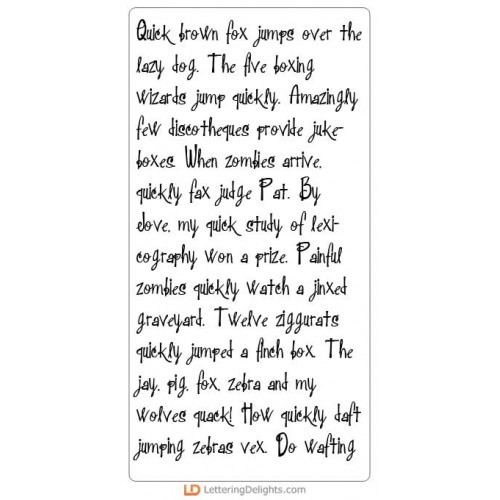 Quick brown fox jumps over the
lazy dog. The five boxing
wizards jump quickly. Amazingly
few discotheques provide juke-
boxes. When zombies arrive,
quickly fax judge Pat. By
Jove, my quick study of lexi-
cography won a prize. Painful
zombies quickly watch a jinxed
graveyard. Twelve ziggurats
quickly jumped a finch box. The
jay, pig, fox, zebra and my
wolves quack! How quickly daft
jumping zebras vex. Do wafting
LD LetteringDelights.com